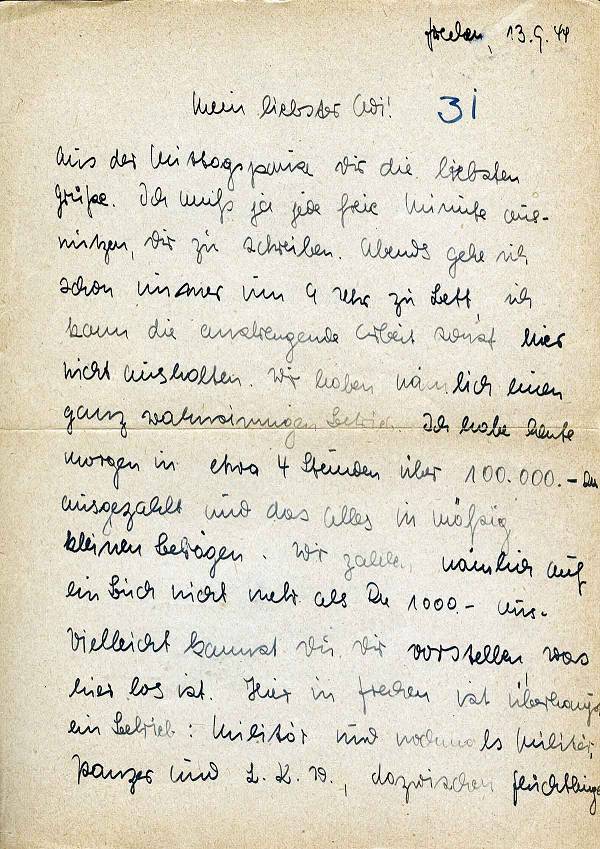 Frechen, 13.9.44
Mein liebster Adi! 31
Aus der Mittagspause Dir die liebsten
Grüße. Ich muß ja jede freie Minute aus-
nützen, Dir zu schreiben. Abends gehe ich
schon immer um 9 Uhr zu Bett ich
kann die anstrengende Arbeit sonst hier
nicht aushalten. Wir haben nämlich einen
ganz wahnsinnigen Betrieb. Ich habe heute
morgen in etwa 4 Stunden über 100.000.- DM
ausgezahlt und das alles in mäßig
kleinen Beträgen. Wir zahlen nämlich auf
ein Buch nicht mehr als DM 1000.- aus.
Vielleicht kannst Du Dir vorstellen, was
hier los ist. Hier in Frechen ist überhaupt
ein Betrieb: Militär und nochmals Militär,
Panzer und L.K.W., dazwischen Flüchtlinge